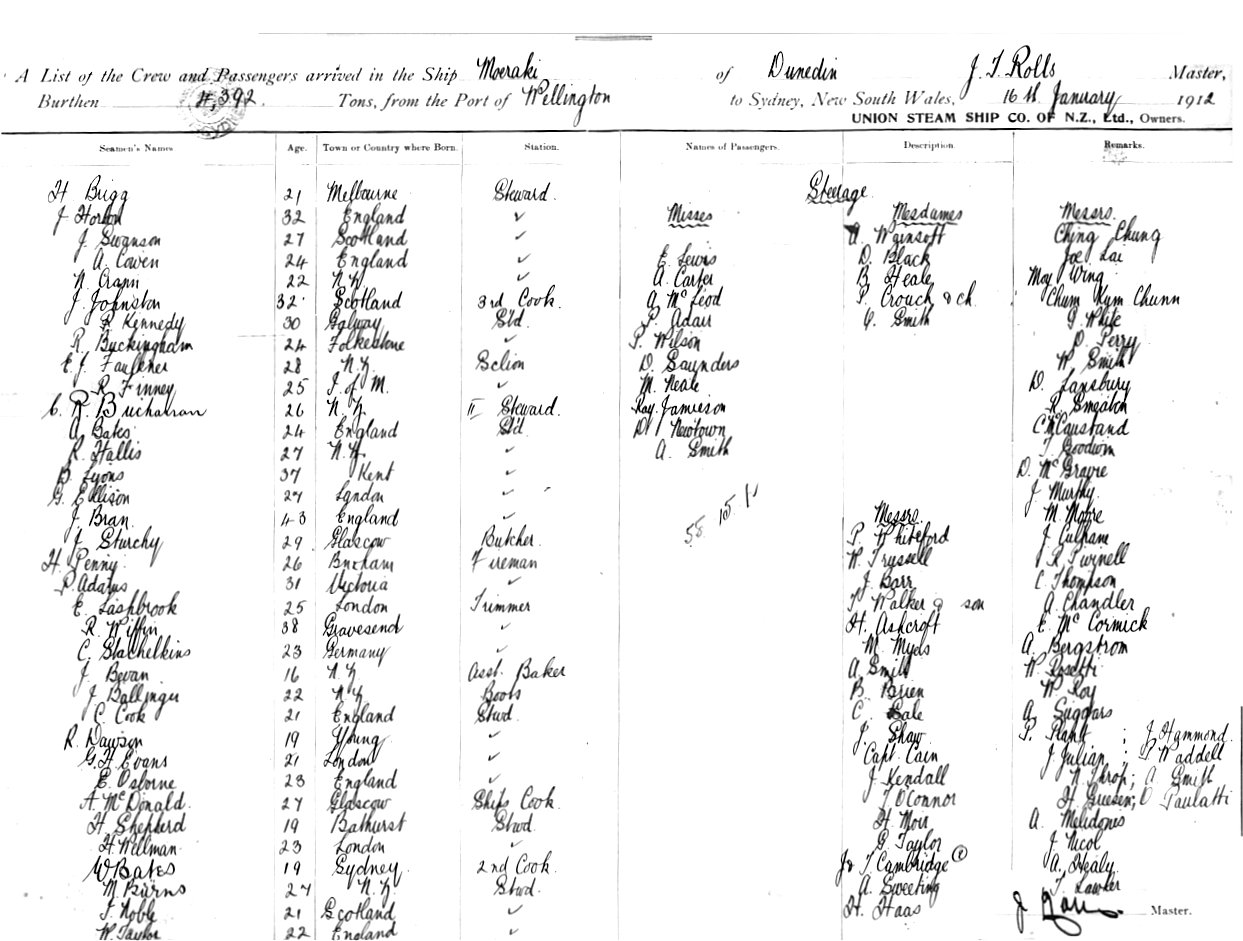 A List of the Crew and Passengers arrived in the Ship Moeraki of Dunedin J. T. Rolls Master,
Burthen 4,392 Tons, from the Port of Wellington to Sydney, New South Wales, 16th January 1912
UNION STEAM SHIP CO. OF N.Z., Ltd., Owners.
Seamen's Names Age. Town or Country where Born. Station. Names of Passengers. Description. Remarks.
H Brigg 21 Melbourne Steward
J Horton 32 England ✓
J. Swanson 27 Scotland ✓
A. Cowen 24 England ✓
N. Crann 22 N.Z. ✓
J. Johnston 32 Scotland 3rd Cook.
R Kennedy 30 Galway Std
R. Buckingham 24 Folkestone ✓
E. J. Faulkner 28 N.Z.
R Finney 25 I. of M. ✓
C. R. Buchanan 26 N.Z. II Steward.
A. Bates 24 England Std
R. Hallis 27 N.Z. ✓
B. Lyons 37 Kent ✓
G. Ellison 27 London ✓
J. Bran 43 England ✓
J. Sturchy 29 Glasgow Butcher
H. Penny 26 Fireman
P. Adams 31 Victoria ✓
E. Lashbrook 25 London Trimmer
R. Wiffin 38 Gravesend ✓
C. Stachelkins 23 Germany ✓
J. Bevan 16 N.Z. Asst. Baker
J. Ballinger 22 N.Z. Boots
C. Cook 21 England Stwd.
R. Dawson 19 Young ✓
G. H. Evans 21 London ✓
E. Osborne 23 England ✓
A. McDonald. 27 Glasgow Ships Cook.
H. Shepherd 19 Bathurst Stwd.
H. Wellman 23 London ✓
W Bates 19 Sydney 2nd Cook.
M. Burns 27 N.Z. Stwd.
J. Noble 21 Scotland ✓
W. Taylor 22 England ✓
Steerage
Misses
E. Lewis
A. Carter
A. McLeod
P. Adair
P. Wilson
D. Saunders
M. Neale
Ray. Jamieson
D. Newtown
A. Smith
58 15 11
Mesdames
A. Wainsoft
D. Black
B. Heale
P. Crouch & ch.
C. Smith
Messrs.
P. Whiteford
W. Trussell
J. Barr
T. Walker & son
H. Ashcroft
M. Myds
A. Smith
B. Brien
C. Gale
J. Shaw
Capt. Cain
J. Kendall
T. O'Connor
H. Moir
G. Taylor
Jr T. Cambridge
A. Sweeting
H. Haas
Messrs.
Ching Chung
Joe Lai
Moy Wing
Chum Kum Chunn
G. White
D. Perry
W. Smith
D. Lansbury
R. Smeaton
C McCausland
T. Goodwin
D. McGravie
J. Murphy.
M. Moore
J. Culham
R. Purnell
C. Thompson
A. Chandler
E. McCormick
A. Bergstrom
W. Rosetti
W. Roy
A. Siggars
P. Plant ; J. Hammond.
J. Julian ; P. Waddell
N. Throp ; A. Smith
H. Guesen; D Paulatti
A. Melidones
J. Nicol
A. Healy
T. Lawler
J. Rolls Master.